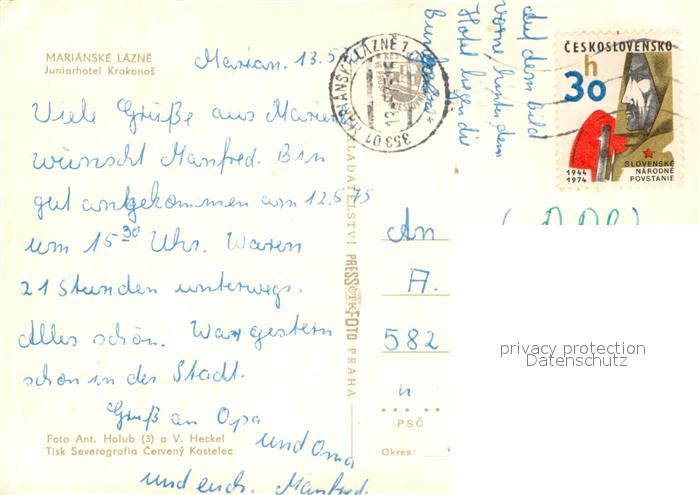 MARIÁNSKÉ LÁZNĚ
Juniorhotel Krakonoš
Marian. 13.5.
Viele Grüße aus Marien
wünscht Manfred. Bin
gut angekommen am 12.5.75
um 15 30 Uhr. Waren
21 Stunden unterwegs.
Alles schön. War gestern
schon in der Stadt.
Gruß an Opa
und Oma
und euch. Manfred.
Foto Ant. Holub (3) a V. Heckel
Tisk Severografia Červený Kostelec
NAKLADATELSTVÍ PRESSFOTO PRAHA
ČTK
353 01 MARIÁNSKÉ LÁZNĚ 1
auf dem Bild
vorne hinter dem
Hotel liegen die
ČESKOSLOVENSKO
h
30
SLOVENSKÉ
NÁRODNÉ
POVSTANIE
1944
1974
(DDR)
An
A.
582
PSČ
Okres:
privacy protection
Datenschutz